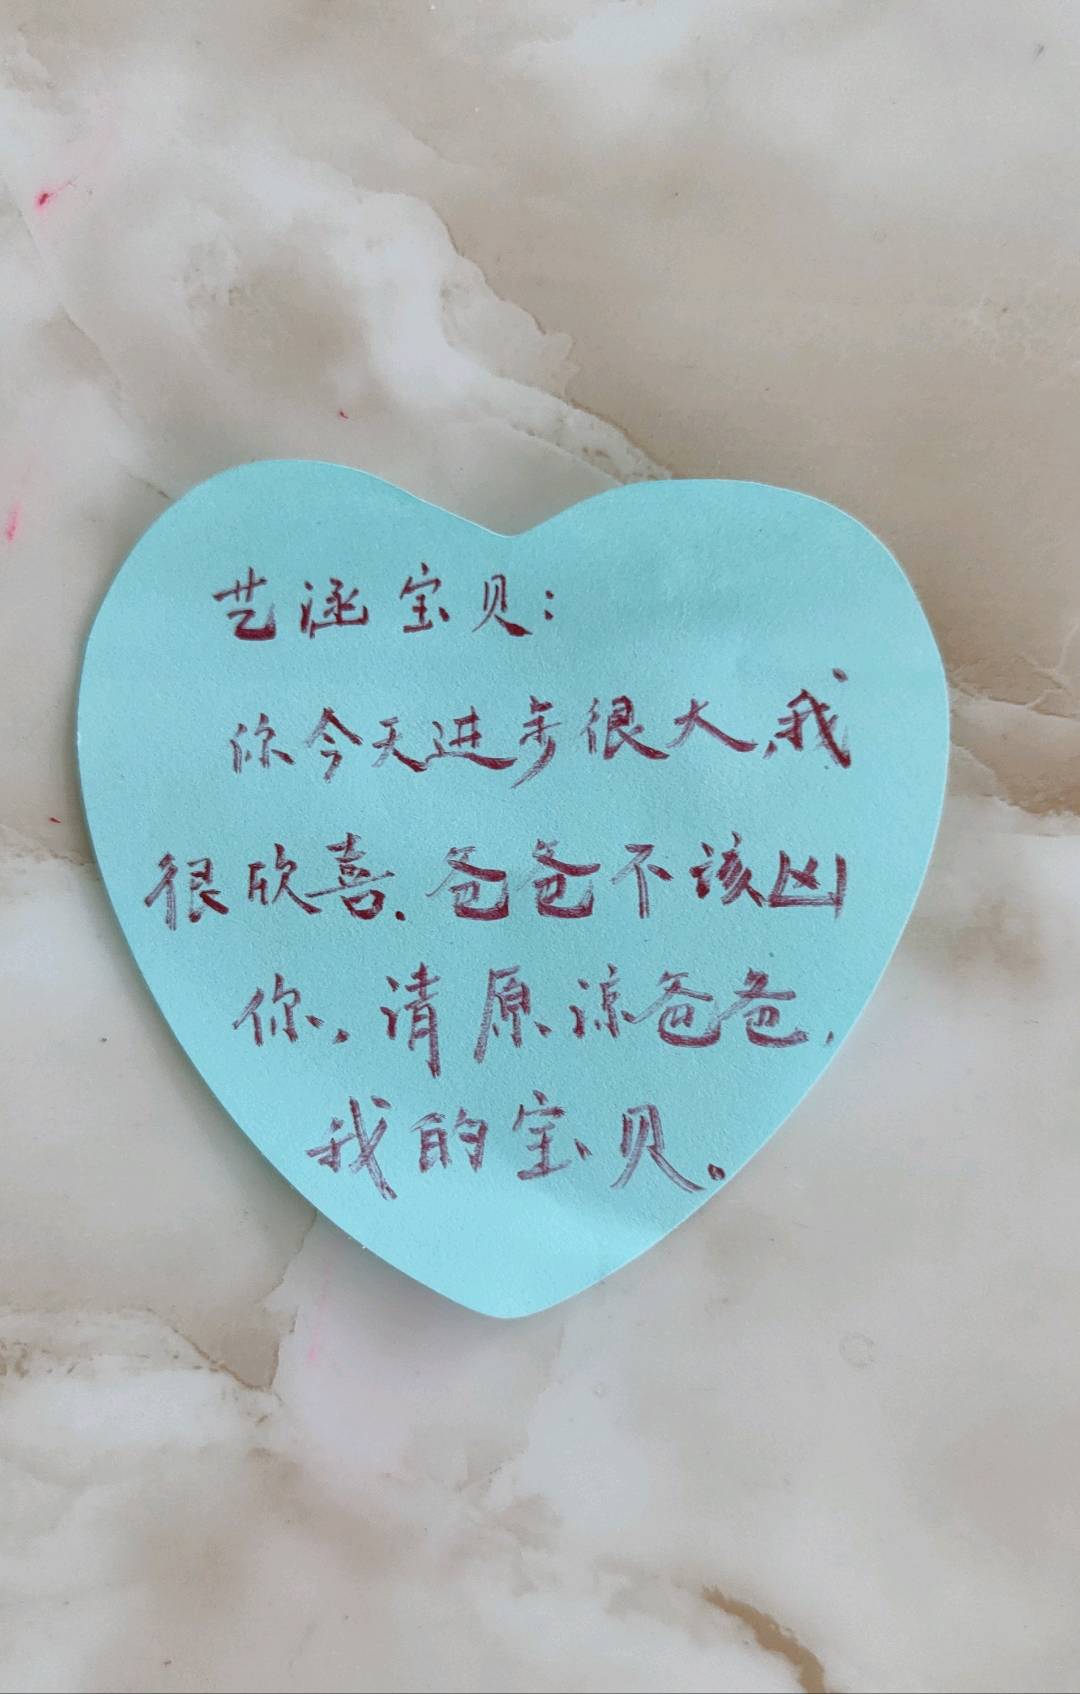 艺涵宝贝:
你今天进步很大,我
很欣喜.爸爸不该凶
你,请原谅爸爸,
我的宝贝。